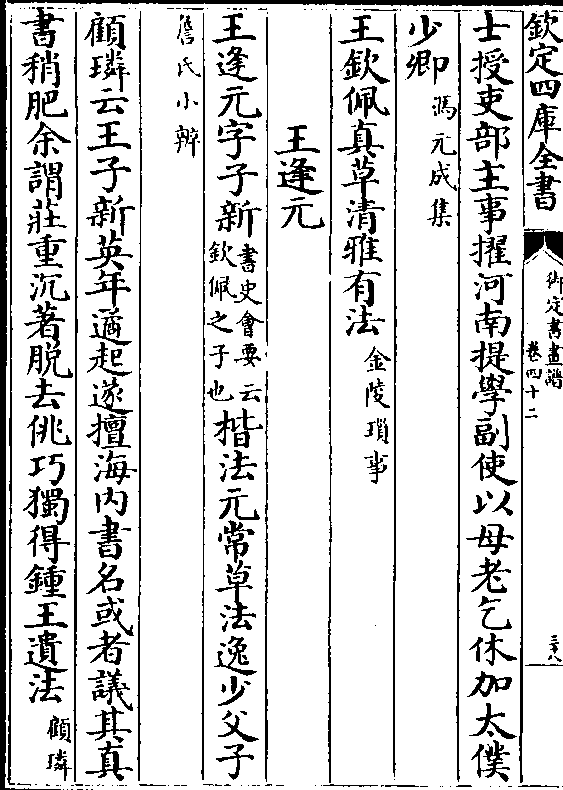 欽定四庫全書
御定書畫譜
卷四十二
三十八
士授吏部主事擢河南提學副使以母老乞休加太僕
少卿馮元成集
王欽佩真草清雅有法金陵瑣事
王逢元
王逢元字子新書史會要云欽佩之子也楷法元常草法逸少父子
詹氏小辨
顧璘云王子新英年遒起遂擅海内書名或者議其真
書稍肥余謂莊重沉著脱去佻巧獨得鍾王遺法顧璘